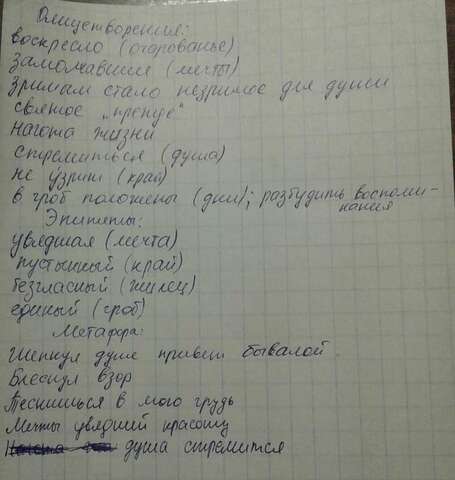 Олицетворения:
воскресло (очарованье)
замолчавшие (мечты)
Зримым стало незримое для души
святое "прежде"
Нагота жизни
стремиться (душа)
не узрит (край)
в гроб положены (дни); разбудить воспоми-
нания
Эпитеты:
увядшая (мечта)
пустынный (край)
безгласный (жилец)
единый (гроб)
Метафора:
Шепнул душе привет бывалой
Блеснул взор
Теснишься в мою грудь
Мечты увядший красоту
душа стремится